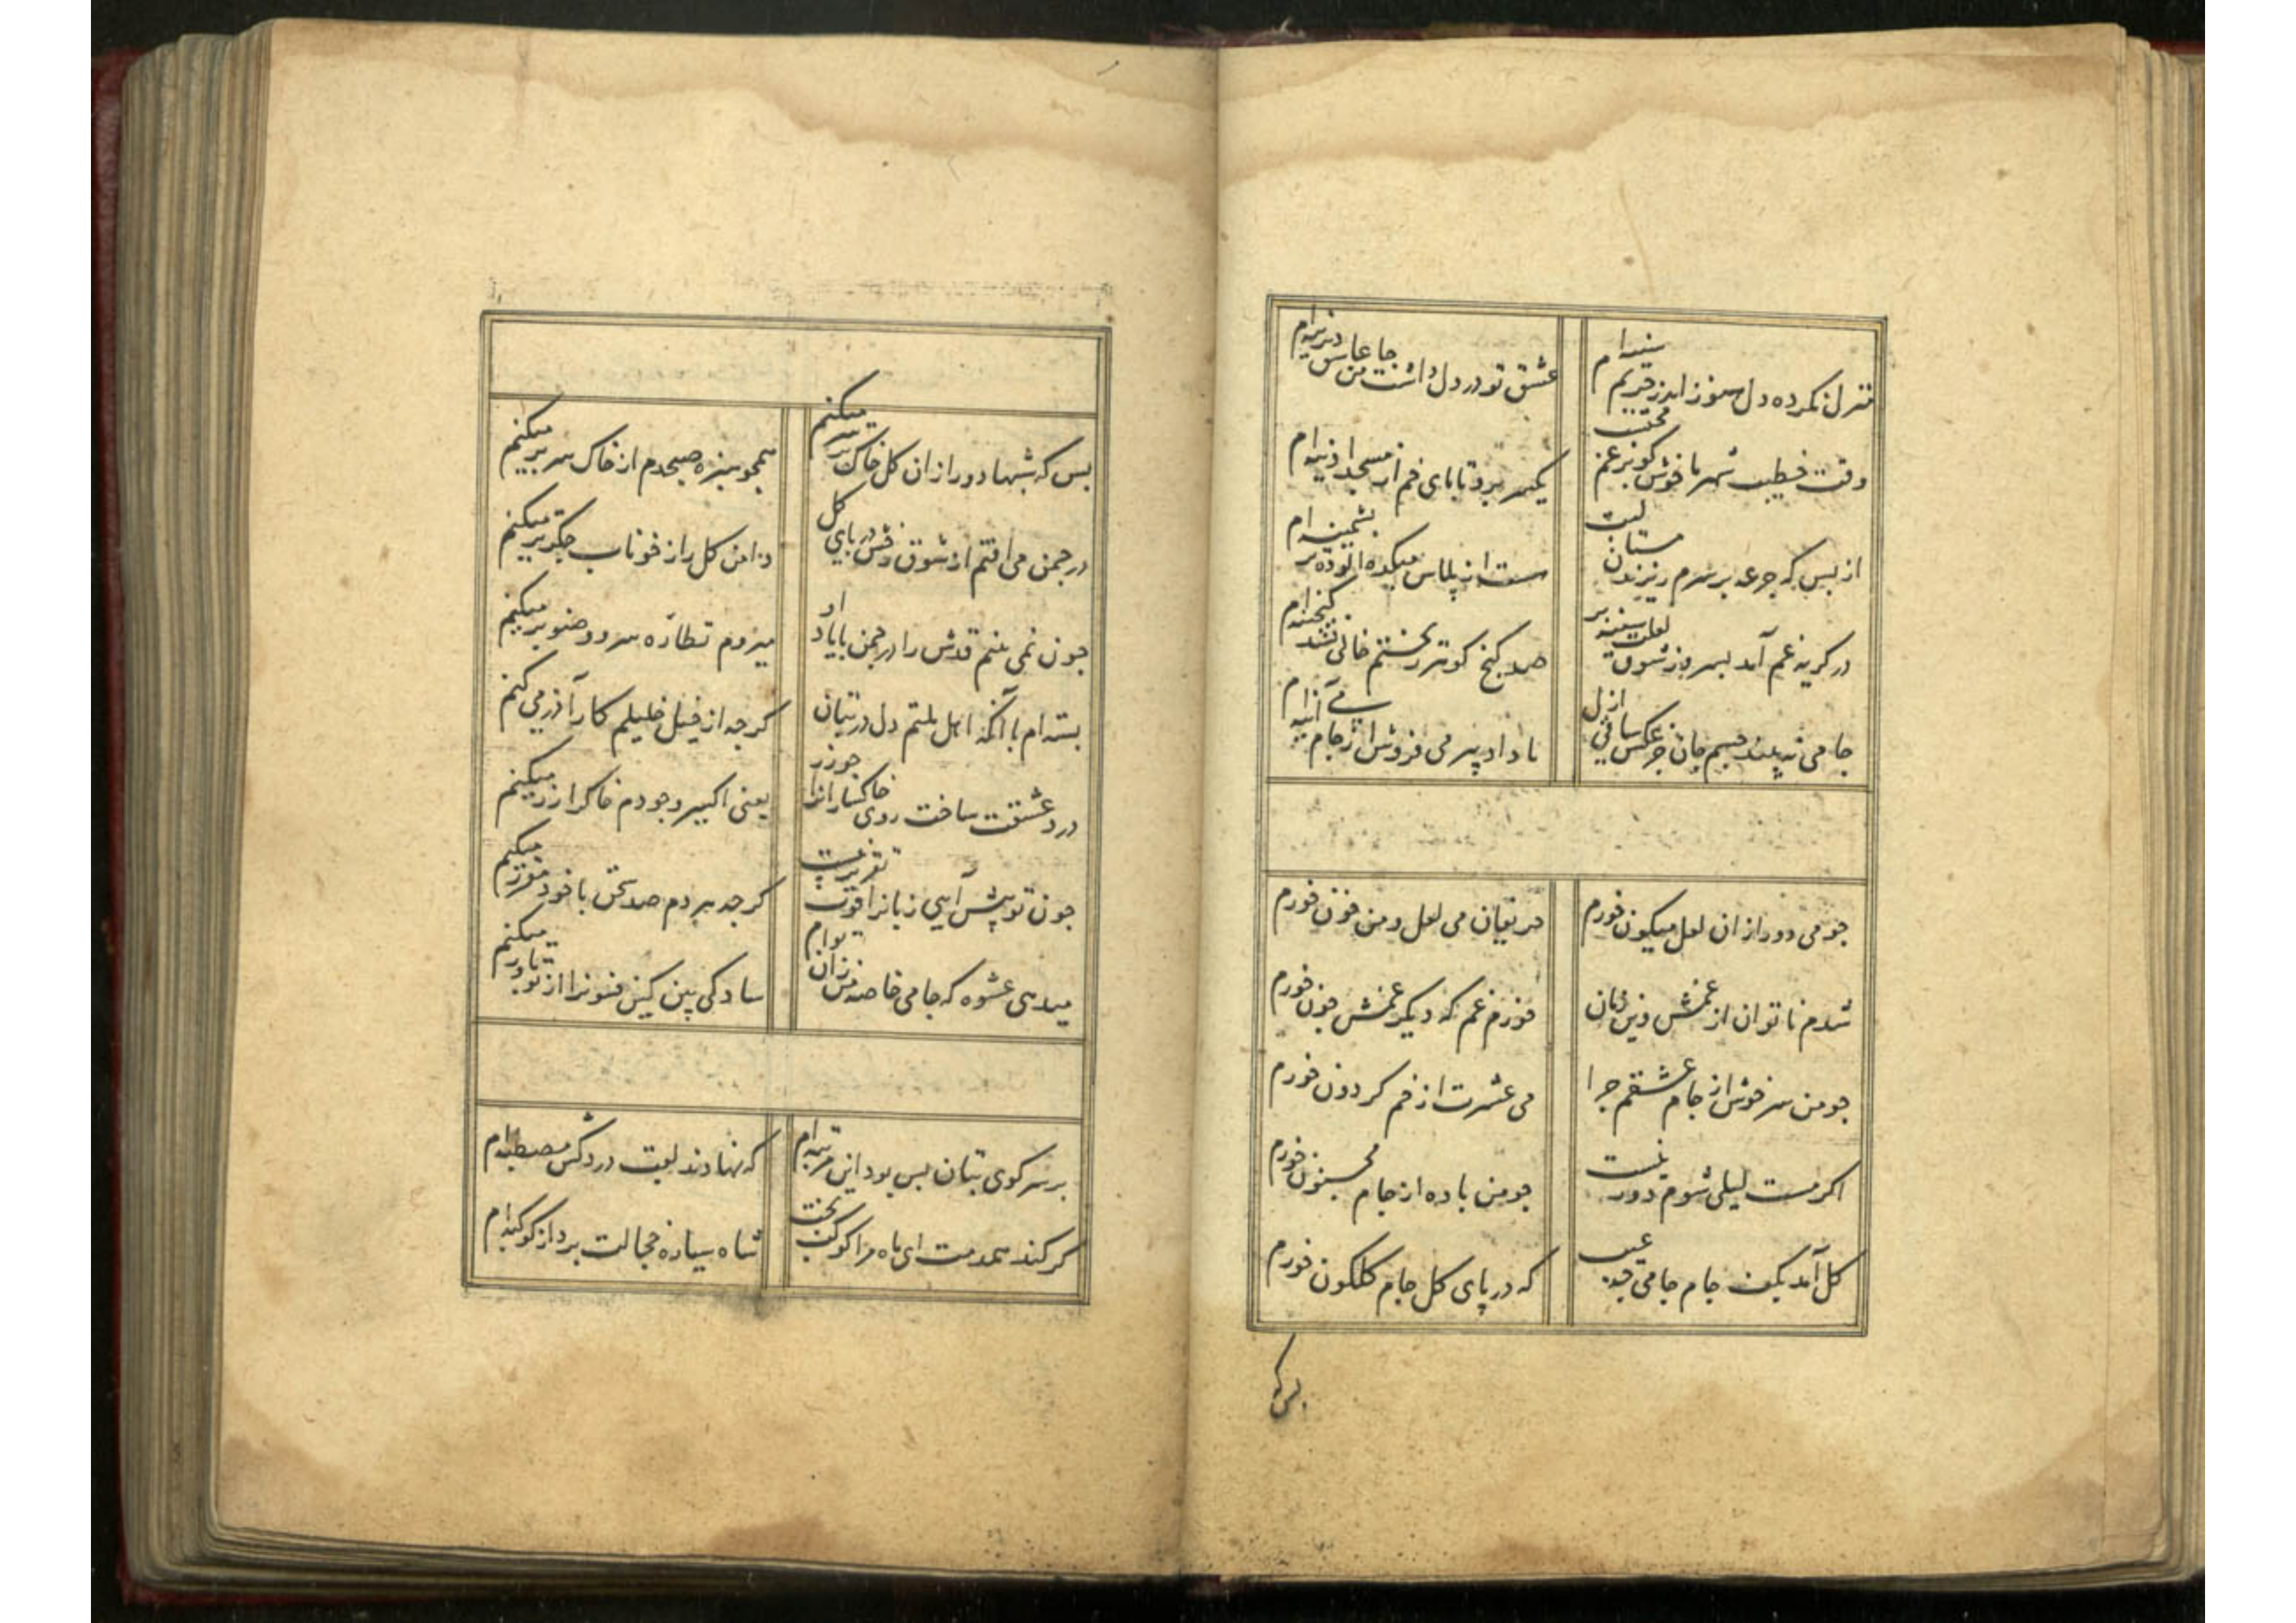 منزل نکرده دل هنوز اندر حریم سینه ام عشق تو در دل داشت جا من عاشق دیرینه ام
وقت خطیب شهر ما خوش کو بر غم محتسب یکسر برد تا پای خم از مسجد آدینه ام
از بس که جرعه بر سرم ریزند مستان لبت مست از پلاس میکده آلوده تر پشمینه ام
در کریه غم آمد بسر روز شوق لعلت سینه پر صد کنج کوهر ریختم خالی نشد کنجینه ام
جامی نه بیند جسم جان جز عکس ساقی ازل تا داد پیر می فروش از جام می آیینه ام
جو می دور ازان لعل میکون خورم حریفان می لعل و من خون خورم
شدم ناتوان از غمش وین زمان خورم غم که دیکر غمش جون خورم
جو من سرخوش از جام عشقم جرا می عشرت از خم کردون خورم
اکر مست لیلی شوم دور نیست جو من باده از جام مجنون خورم
کل آمد بکف جام جامی جه عیب که در پای کل جام کلکون خورم
بس که
بس که شبها دور ازان کل خاک بر سر میکنم همجو سبزه صبحدم از خاک سر بر میکنم
در جمن می افتم از شوق رخش در پای کل دامن کل را ز خوناب جکر تر میکنم
جون نمی بینم قدش را در جمن با یاد او میروم نظاره سرو و صنوبر میکنم
بسته ام با آنکه اهل ملتم دل در بتان کرجه از خیل خلیلم کار آذر می کنم
درد عشقت ساخت روی خاکسارانرا جو زر یعنی اکسیر وجودم خاکرا زر میکنم
جون تو پیش آیی زبانرا قوت تقریر نیست کرجه هر دم صد سخن با خود مقرر میکنم
میدهی عشوه که جامی خاصه من زان توام سادکی بین کین فسونرا از تو باور میکنم
بر سر کوی بتان بس بود این مرتبه ام که نهادند لقب دردکش مصطبه ام
کر کند همدمت ای ماه مرا کوکب بخت شاه سیاره خجالت برد از کوکبه ام